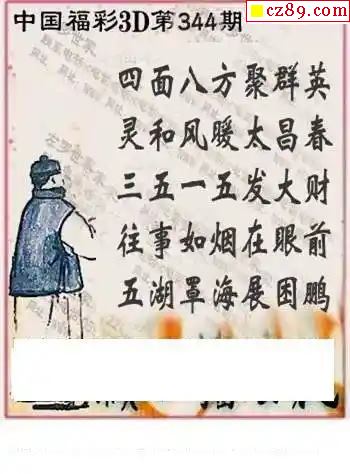 cz89.com
中国福彩3D第344期
四面八方聚群英
灵和风暖太昌春
三五一五发大财
往事如烟在眼前
五湖罩海展困鹏